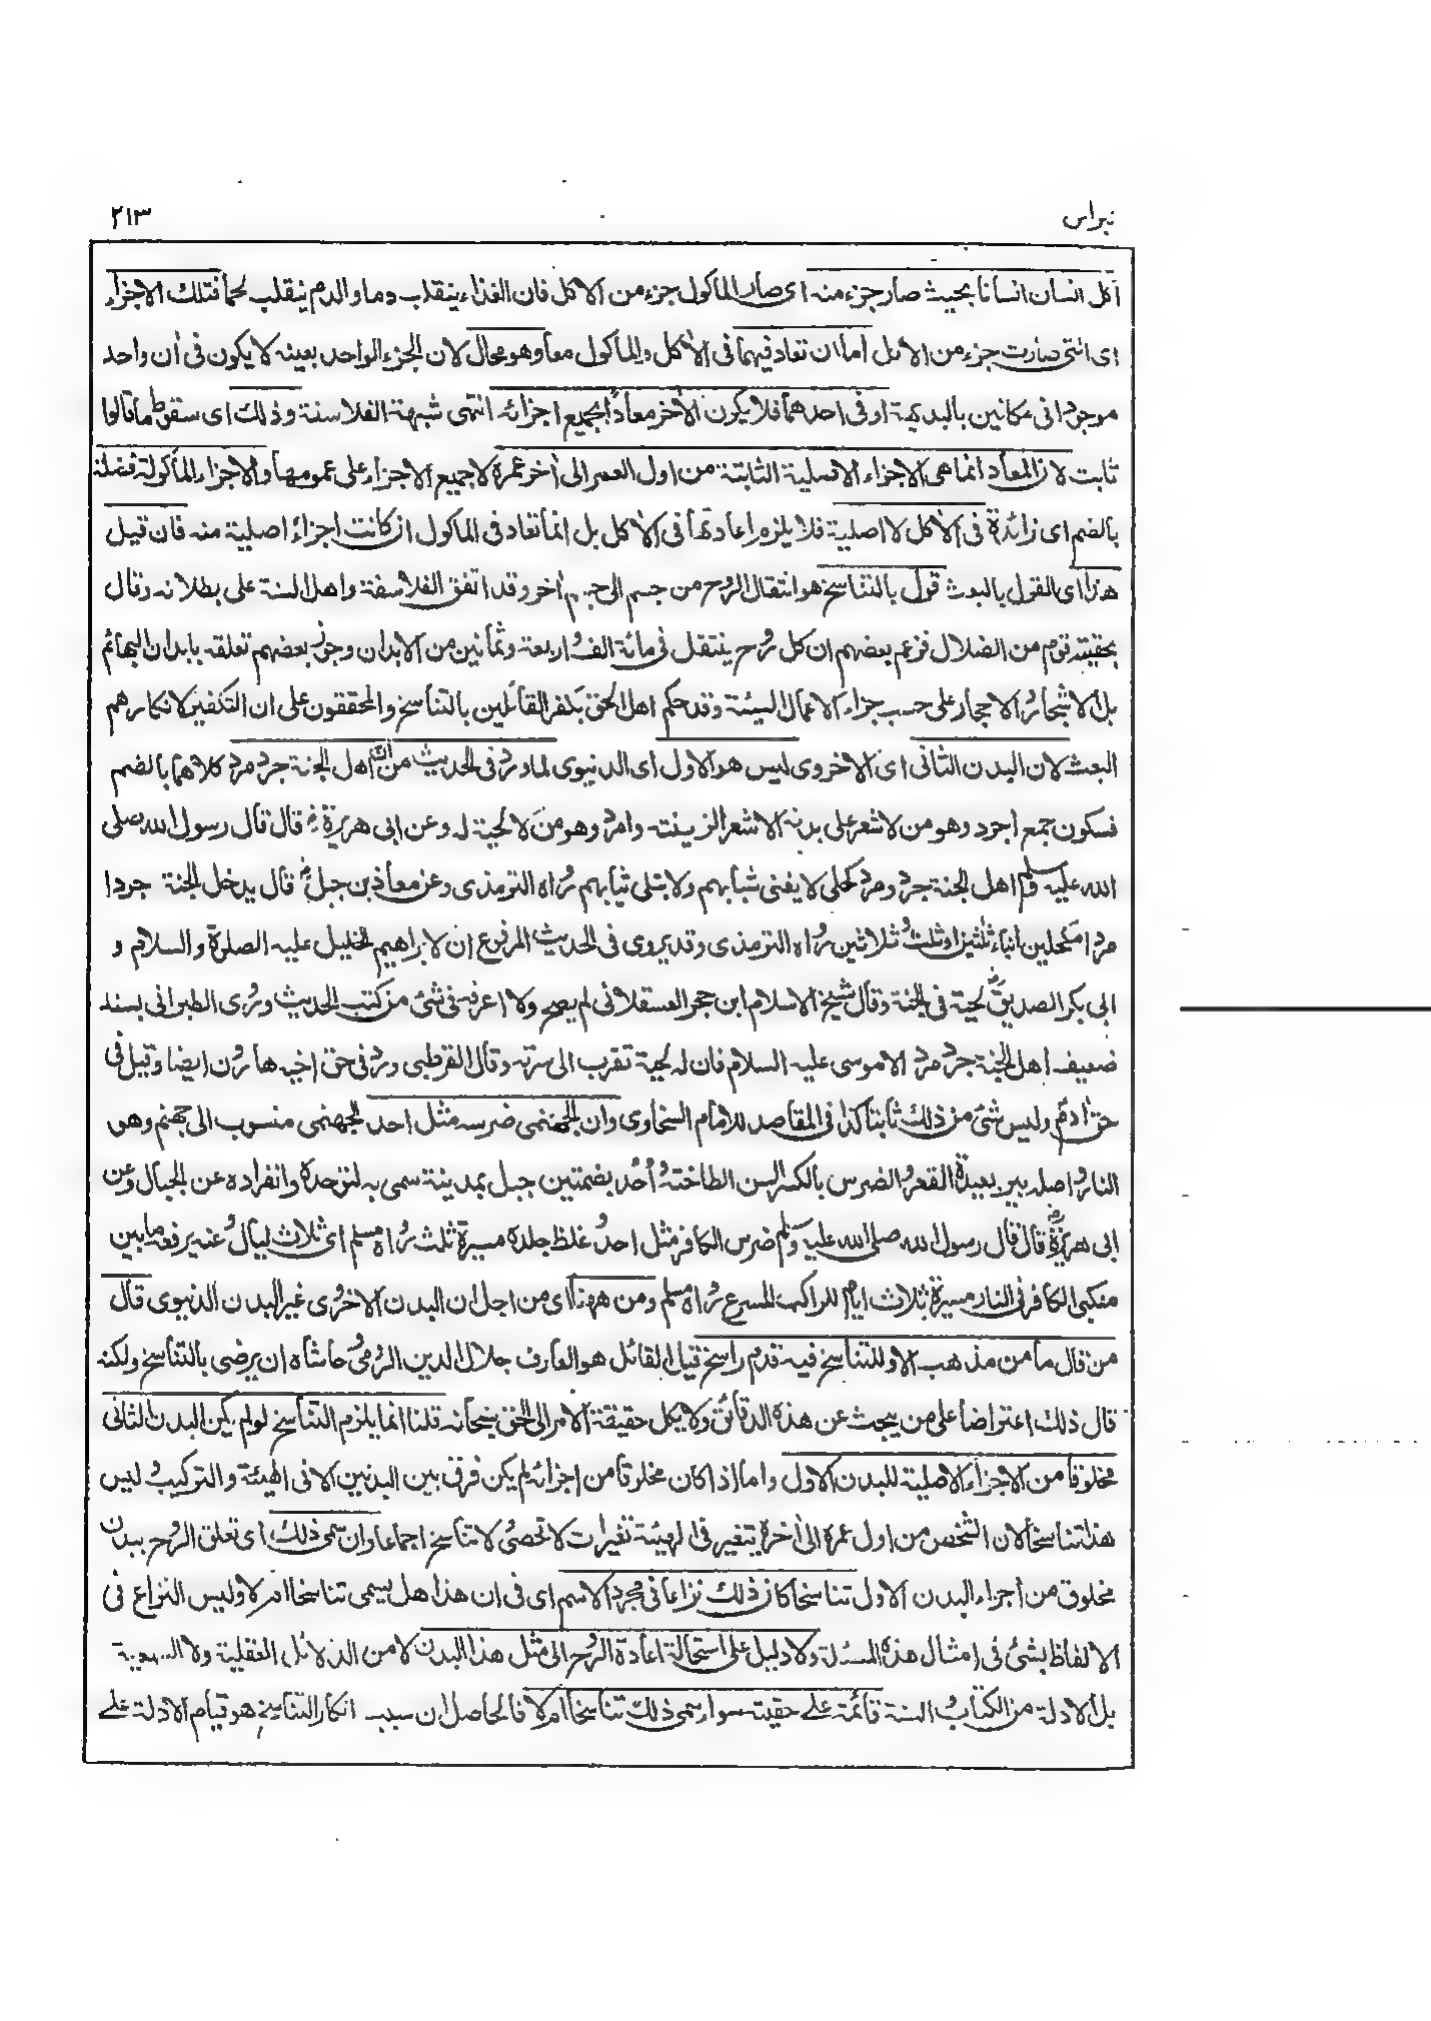 نبراس
٢١٣
اكل انسان انسانا بحيث صار جزء منه اى صار الماكول جزء من الاكل فان الغذاء ينقلب دما والدم ينقلب لحما فتلك الاجزاء
اى التى صارت جزء من الاكل اما ان تعاد فيهما فى الاٰكل والماكول معا وهو محال لان الجزء الواحد بعينه لا يكون فى اٰن واحد
موجودا فى مكانين بالبديهة او فى احدهما فلا يكون الاٰخر معادًا بجميع اجزائه انتهى شبهة الفلاسفة وذلك اى سقوط ما قالوا
ثابت لان المعاد انما هى الاجزاء الاصلية الثابتة من اول العمر الى اٰخر عمره لا جميع الاجزاء على عمومها والاجزاء الماكولة فضلة
بالضم اى زائدة فى الاٰكل لا اصلية فلا يلزم اعادتها فى الاٰكل بل انما تعاد فى الماكول ان كانت اجزاء اصلية منه فان قيل
هذا اى القول بالبعث قول بالتناسخ هو انتقال الروح من جسم الى جسم اٰخر وقد اتفق الفلاسفة واهل السنة على بطلانه وقال
بحقيته قوم من الضلال فزعم بعضهم ان كل روح ينتقل فى مائة الف واربعة وثمانين من الابدان وجوز بعضهم تعلقه بابدان البهائم
بل الاشجار والاحجار على حسب جزاء الاعمال السيئة وقد حكم اهل الحق بكفر القائلين بالتناسخ والمحققون على ان التكفير لانكارهم
البعث لان البدن الثانى اى الاخروى ليس هو الاول اى الدنيوى لما ورد فى الحديث من ان اهل الجنة جرد مرد كلاهما بالضم
فسكون جمع اجرد وهو من لا شعر على بدنه الا شعر الزينة وامرد وهو من لا لحية له وعن ابى هريرة رض قال قال رسول الله صلى
الله عليه وسلم اهل الجنة جرد ومرد كحلى لا يفنى شبابهم ولا تبلى ثيابهم رواه الترمذى وعن معاذ بن جبل رض قال يدخل الجنة جردا
مردا مكحلين ابناء ثلٰثين او ثلث وثلاثين رواه الترمذى وقد يروى فى الحديث المرفوع ان لابراهيم الخليل عليه الصلوة والسلام و
ابى بكر الصديق رض لحية فى الجنة وقال شيخ الاسلام ابن حجر العسقلانى لم يصح ولا اعرفه فى شئ من كتب الحديث وروى الطبرانى بسند
ضعيف اهل الجنة جرد مرد الا موسى عليه السلام فان له لحية تقرب الى سرته وقال القرطبى ورد فى حق اخيه هارون ايضا وقيل فى
حق اٰدم وليس شئ من ذلك ثابتا كذا فى المقاصد للامام السخاوى وان الجهنمى ضرسه مثل احد الجهنمى منسوب الى جهنم وهو
النار واصله بير بعيدة القعر والضرس بالكسر السن الطاحنة واُحُد بضمتين جبل بمدينة سمى به لتوحده وانفراده عن الجبال وعن
ابى هريرة رض قال قال رسول الله صلى الله عليه وسلم ضرس الكافر مثل احد وغلظ جلده مسيرة ثلث رواه مسلم اى ثلاث ليال وعنه يرفعه ما بين
منكبى الكافر فى النار مسيرة ثلاث ايام للراكب المسرع رواه مسلم ومن ههنا اى من اجل ان البدن الاخروى غير البدن الدنيوى قال
من قال ما من مذهب الا وللتناسخ فيه قدم راسخ قيل القائل هو العارف جلال الدين الرومى وحاشاه ان يرضى بالتناسخ ولكنه
قال ذلك اعتراضا على من يبحث عن هذه الدقائق ولا يكل حقيقة الامر الى الحق سبحانه قلنا انما يلزم التناسخ لو لم يكن البدن الثانى
مخلوقا من الاجزاء الاصلية للبدن الاول واما اذا كان مخلوقا من اجزائه لم يكن فرق بين البدنين الا فى الهيئة والتركيب وليس
هذا تناسخا لان الشخص من اول عمره الى اٰخره يتغير فى الهيئة تغيرات لا تحصى ولا تناسخ اجماعا وان سمى ذلك اى تعلق الروح ببدن
مخلوق من اجزاء البدن الاول تناسخا كان ذلك نزاعا فى مجرد الاسم اى فى ان هذا هل يسمى تناسخا ام لا وليس النزاع فى
الالفاظ بشئ فى امثال هذه المسئلة ولا دليل على استحالة اعادة الروح الى مثل هذا البدن لا من الدلائل العقلية ولا السمعية
بل الادلة من الكتاب والسنة قائمة على حقيته سواء سمى ذلك تناسخا ام لا فالحاصل ان سبب انكار التناسخ هو قيام الادلة على